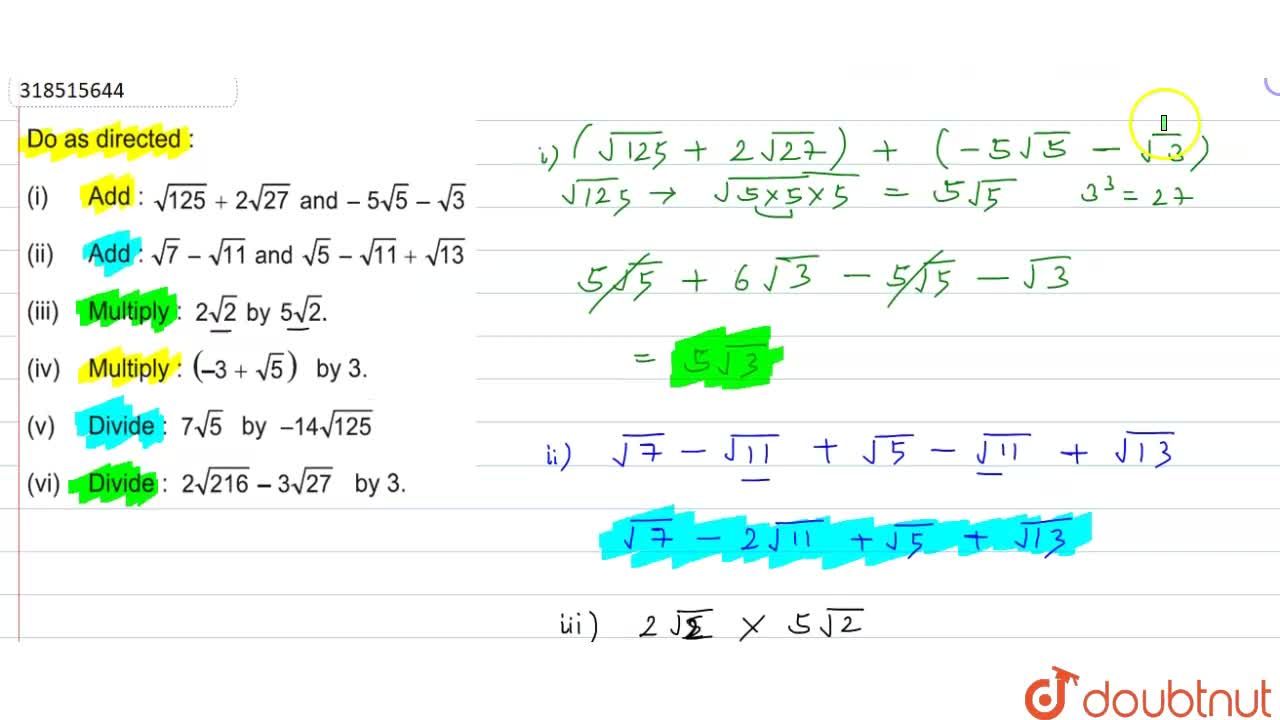 318515644
Do as directed :
(i) Add : √125 + 2√27 and – 5√5 – √3
(ii) Add : √7 – √11 and √5 – √11 + √13
(iii) Multiply : 2√2 by 5√2.
(iv) Multiply : (–3 + √5) by 3.
(v) Divide : 7√5 by –14√125
(vi) Divide : 2√216 – 3√27 by 3.
i) (√125 + 2√27) + (-5√5 - √3)
√125 → √5×5×5 = 5√5 3³ = 27
5√5 + 6√3 - 5√5 - √3
= 5√3
ii) √7 - √11 + √5 - √11 + √13
√7 - 2√11 + √5 + √13
iii) 2√2 × 5√2
doubtnut